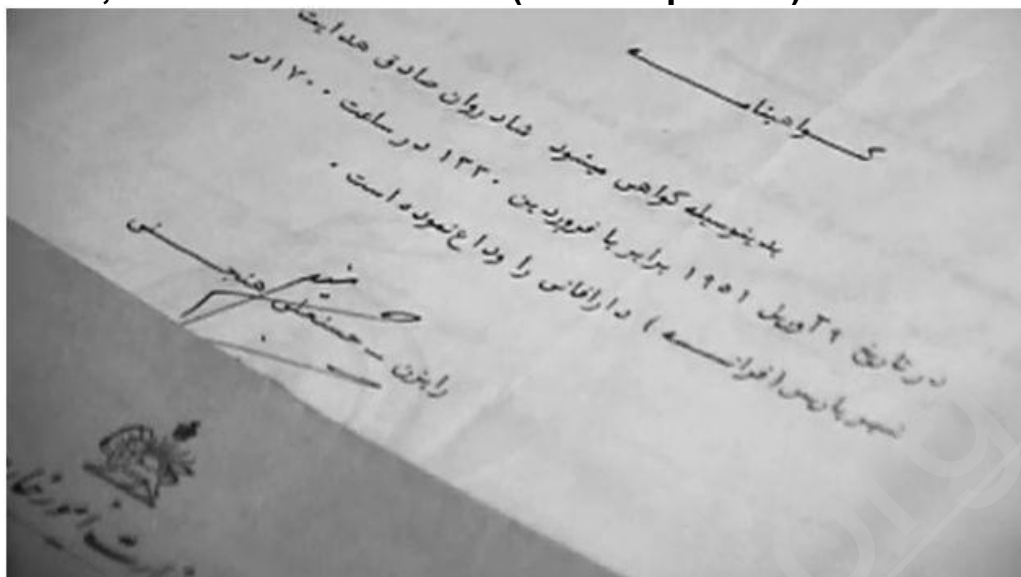 گواهینامه
بدینوسیله گواهی میشود شادروان صادق هدایت
در تاریخ ۹ آوریل ۱۹۵۱ برابر با فروردین ۱۳۳۰ در ساعت ۱۷۰۰ در
شهر پاریس (فرانسه) دارفانی را وداع نموده است .
رایزن - حسنعلی
وزارت امور خارجه
org